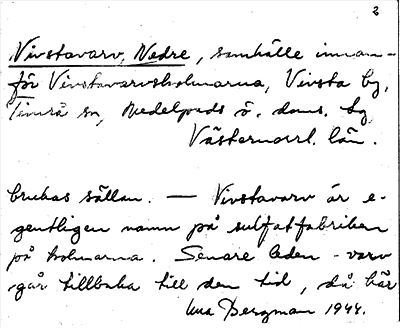 2
Vivstavarv, Nedre, samhälle innan-
för Vivstavarvsholmarna, Vivsta by,
Timrå sn, Medelpads ö. doms. by
Västernorrl. län.
brukas sällan. — Vivstavarv är e-
gentligen namn på sulfatfabriken
på holmarna. Senare leden -varv
går tillbaka till den tid, då här
Una Bergman 1944.